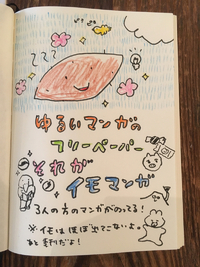 ゆるいマンガの
フリーペーパー
それが
イモマンガ
3人の方のマンガがのってる!
※イモはほぼ出てこないよ。
あと季刊だよ!